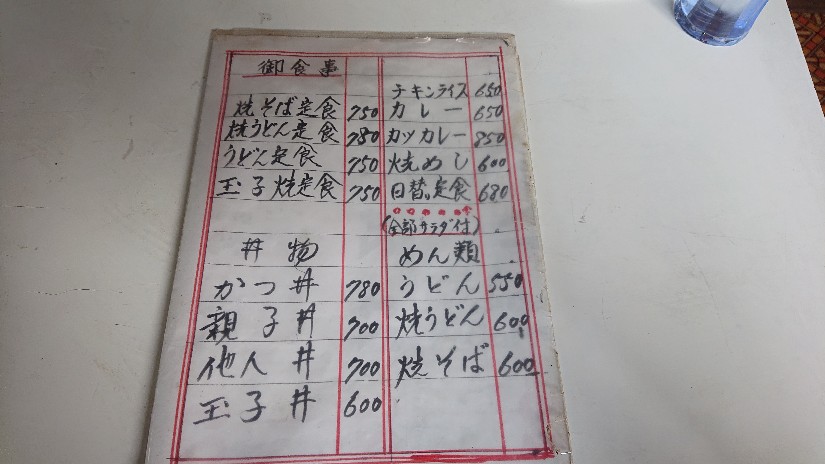 御食事
焼そば定食 750
焼うどん定食 780
うどん定食 750
玉子焼定食 750
丼物
かつ丼 780
親子丼 700
他人丼 700
玉子丼 600
チキンライス 650
カレー 650
カツカレー 850
焼めし 600
日替り定食 680
(全部サラダ付)
めん類
うどん 550
焼うどん 600
焼そば 600